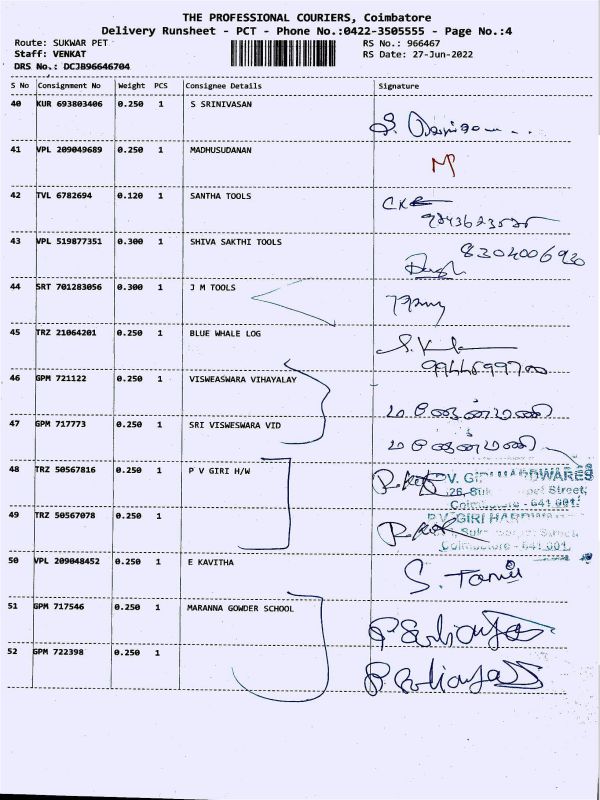 THE PROFESSIONAL COURIERS, Coimbatore
Delivery Runsheet - PCT - Phone No.:0422-3505555 - Page No.:4
Route: SUKWAR PET
RS No.: 966467
Staff: VENKAT
RS Date: 27-Jun-2022
DRS No.: DCJB96646704
S No Consignment No Weight PCS Consignee Details Signature
40 KUR 693803406 0.250 1 S SRINIVASAN
41 VPL 209049689 0.250 1 MADHUSUDANAN
42 TVL 6782694 0.120 1 SANTHA TOOLS
43 VPL 519877351 0.300 1 SHIVA SAKTHI TOOLS
8304006930
44 SRT 701283056 0.300 1 J M TOOLS
45 TRZ 21064201 0.250 1 BLUE WHALE LOG
46 GPM 721122 0.250 1 VISWEASWARA VIHAYALAY
47 GPM 717773 0.250 1 SRI VISWESWARA VID
48 TRZ 50567816 0.250 1 P V GIRI H/W
P.V. GIRI HARDWARES
Street,
Coimbatore - 641 001.
49 TRZ 50567078 0.250 1
P.V. GIRI HARDWARES
Street,
Coimbatore - 641 001.
50 VPL 209048452 0.250 1 E KAVITHA
51 GPM 717546 0.250 1 MARANNA GOWDER SCHOOL
52 GPM 722398 0.250 1